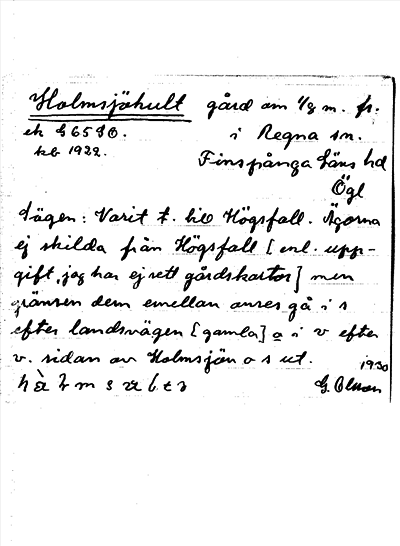 Holmsjöhult gård om 1/8 m. fr.
ek G6590. i Regna sn.
kb 1922. Finspånga läns hd
Ögl
Lägen: Varit t. till Högsfall. Ägorna
ej skilda från Högsfall [enl. upp-
gift, jag har ej sett gårdskartor] men
gränsen dem emellan anses gå i s
efter landsvägen [gamla] o i v efter
v. sidan av Holmsjön o s ut.
1930
G. Olsson